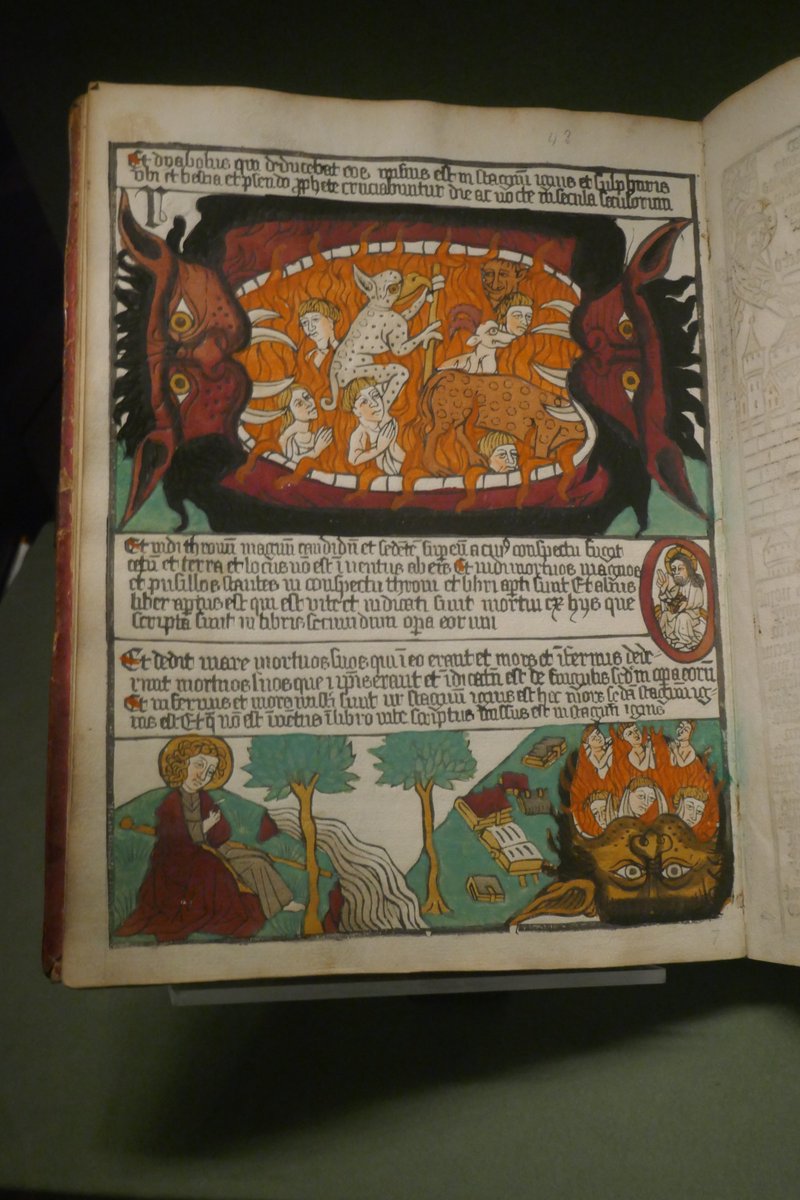 48
Et dyabolus qui deducebat eos missus est in stagnū ignis et sulphuris
ubi et bestia et pseudo ꝓphete cruciabuntur die ac nocte in secula seculorum
Et vidi thronum magnum candidū et sedentē super eū a cuiꝰ conspectu fugit
celū et terra et locus nō est inventus ab eis Et vidi mortuos magnos
et pusillos stantes in conspectu throni et libri apti sunt Et alius
liber aptus est qui est vite et iudicati sunt mortui ex hys que
scripta sunt in libris secundum opa eorum
Et dedit mare mortuos suos qui ī eo erant et mors et īfernus dede-
runt mortuos suos que ī ipīs erant et iudicatū est de singulis scdm opa eorū
Et infernus et mors missi sunt in stagnū ignis est hec mors scda stagnū ig-
nis est Et q̄ nō est īvētus ī libro vite scriptus missus est in stagnū ignis